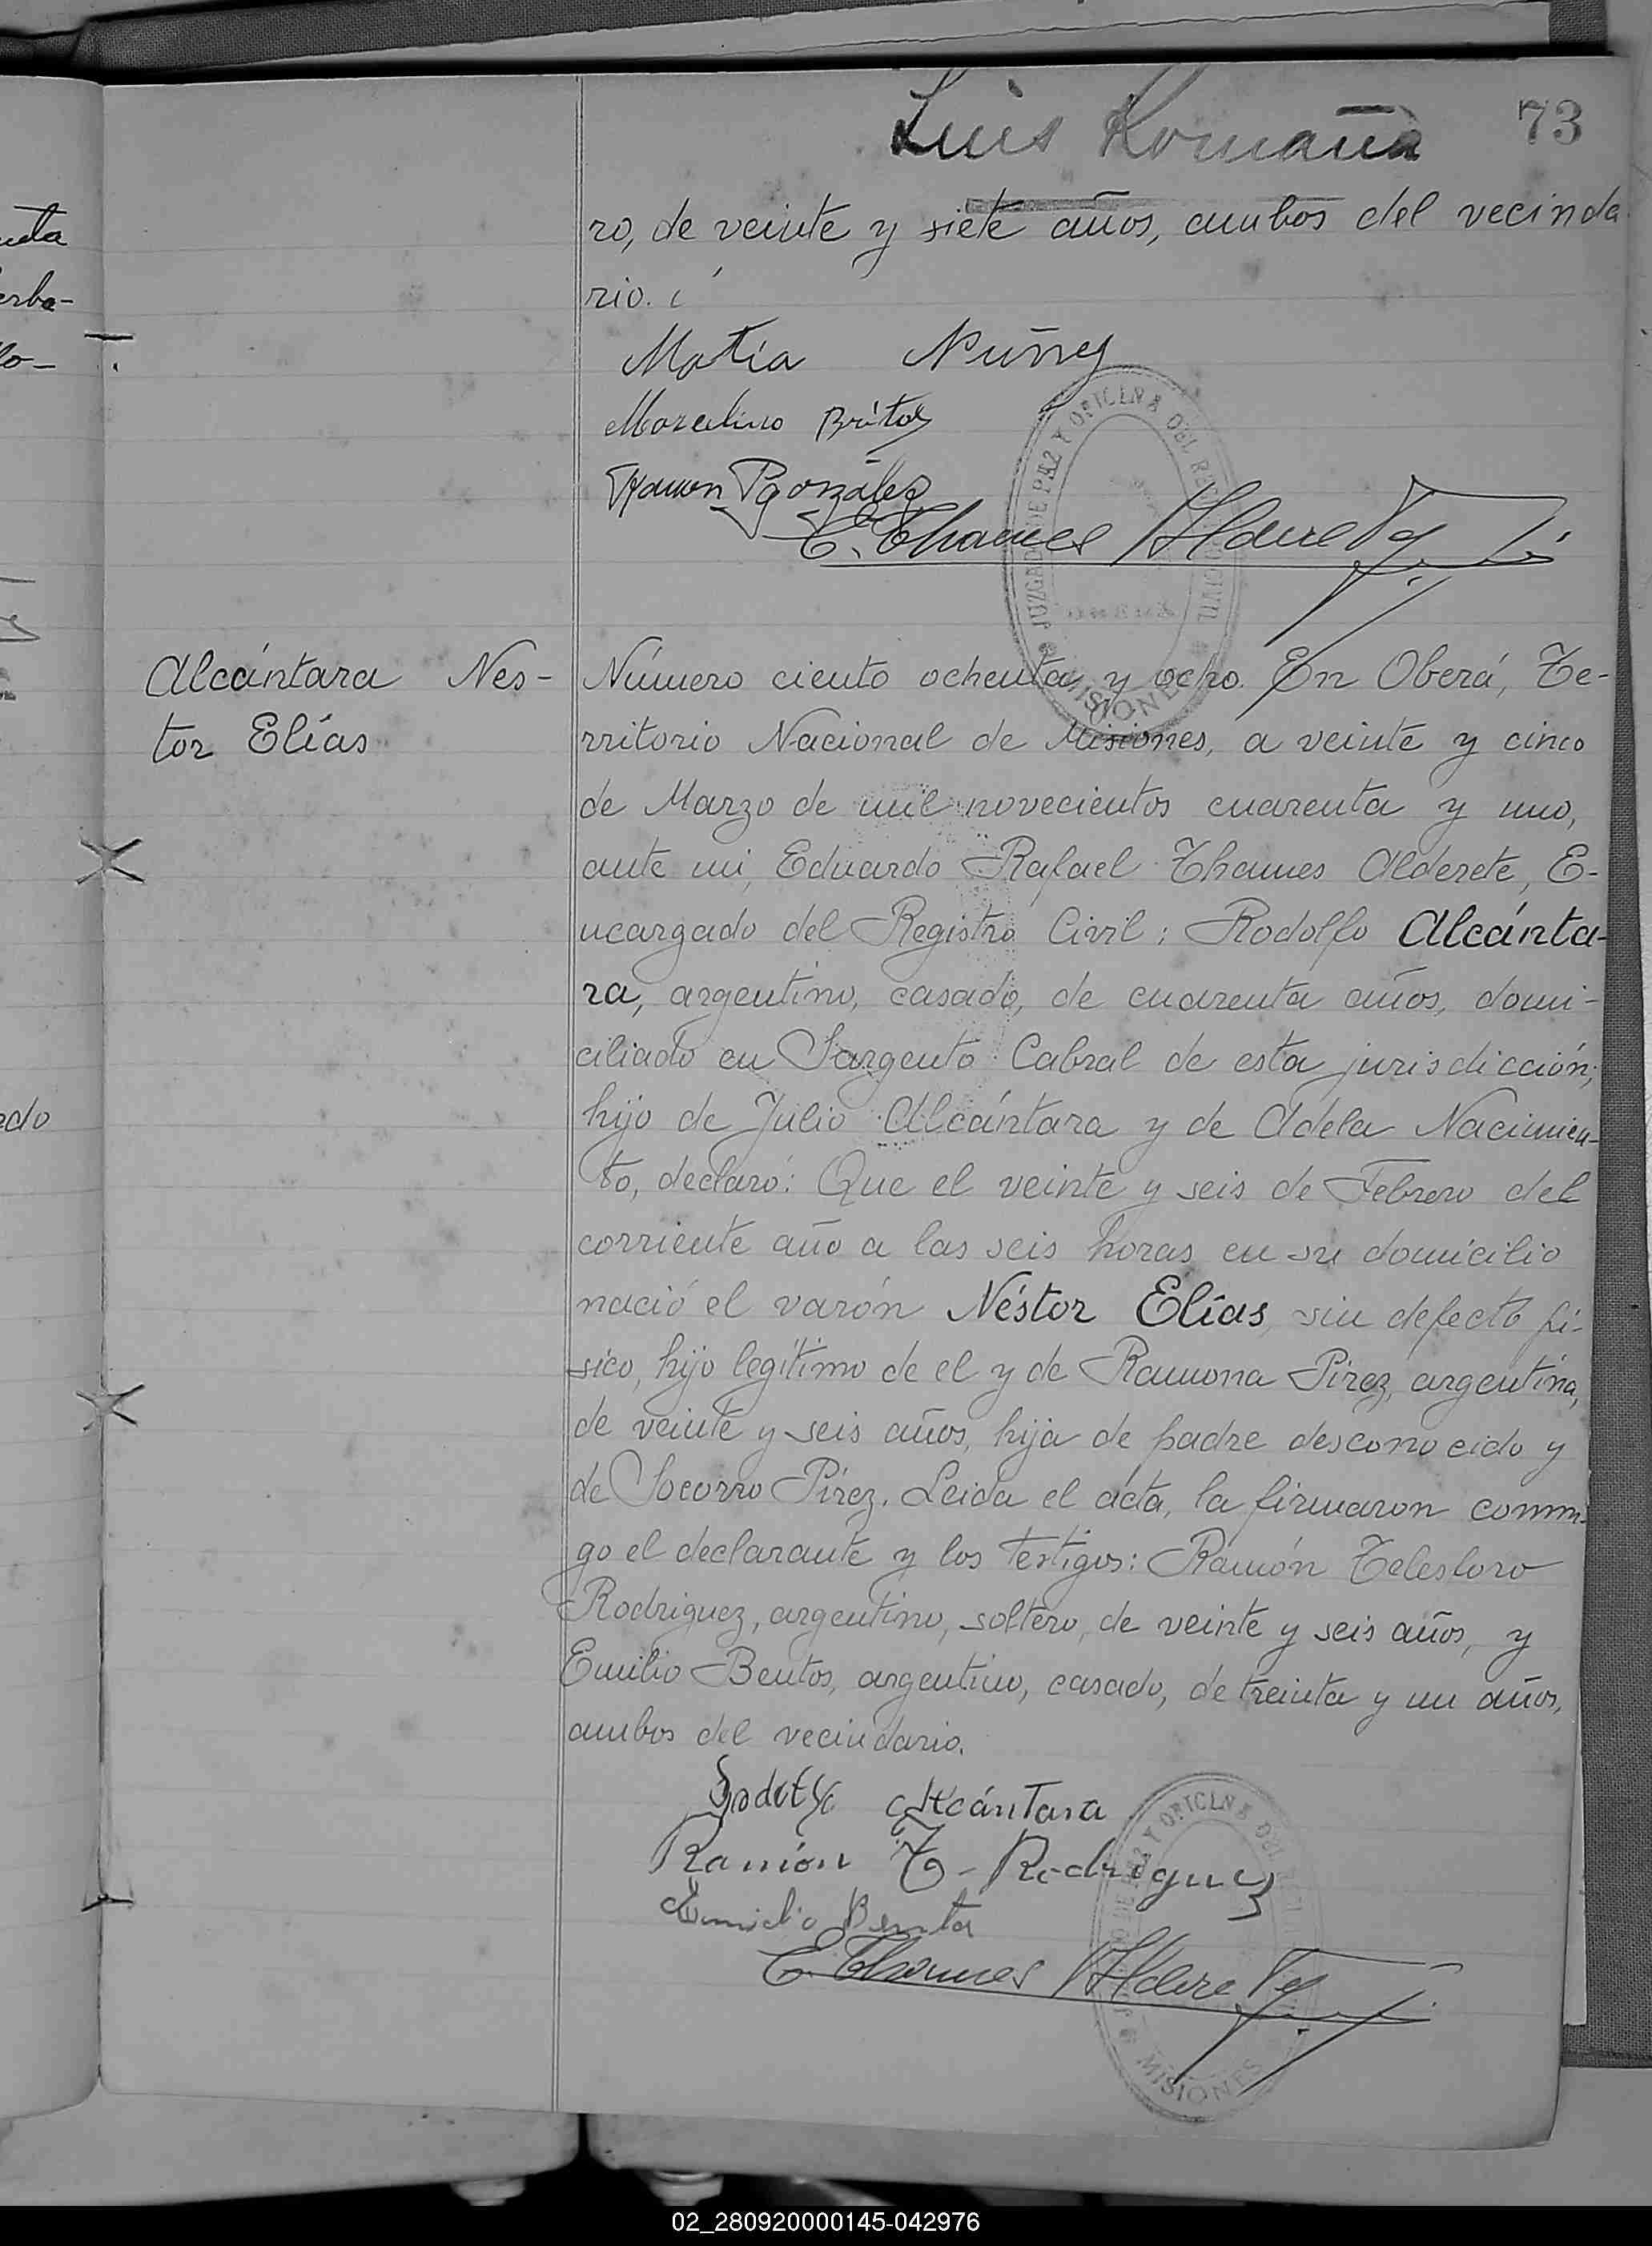 Luis Romaña 73
ro, de veinte y siete años, ambos del vecinda
rio.
Matia Nuñez
Marcelino Brítos
Ramon P González
E. Thames Alderete
Alcántara Nes-
tor Elías
Número ciento ochenta y ocho. En Oberá, Te-
rritorio Nacional de Misiones, a veinte y cinco
de Marzo de mil novecientos cuarenta y uno,
ante mi, Eduardo Rafael Thames Alderete, E-
ncargado del Registro Civil: Rodolfo Alcánta-
ra, argentino, casado, de cuarenta años, domi-
ciliado en Sargento Cabral de esta jurisdicción;
hijo de Julio Alcántara y de Adela Nacimien-
to, declaró: Que el veinte y seis de Febrero del
corriente año a las seis horas en su domicilio
nació el varón Néstor Elías, sin defecto fí-
sico, hijo legítimo de el y de Ramona Pírez, argentina,
de veinte y seis años, hija de padre desconocido y
de Socorro Pírez. Leida el acta, la firmaron conmi-
go el declarante y los testigos: Ramón Telesforo
Rodriguez, argentino, soltero, de veinte y seis años, y
Emilio Bentos, argentino, casado, de treinta y un años,
ambos del vecindario.
Alcántara
Ramón T. Rodriguez
E. Thames Alderete
JUZGADO DE PAZ Y OFICINA DEL REGISTRO CIVIL
MISIONES
MISIONES
uta
erba-
lo-
ado
02_280920000145-042976